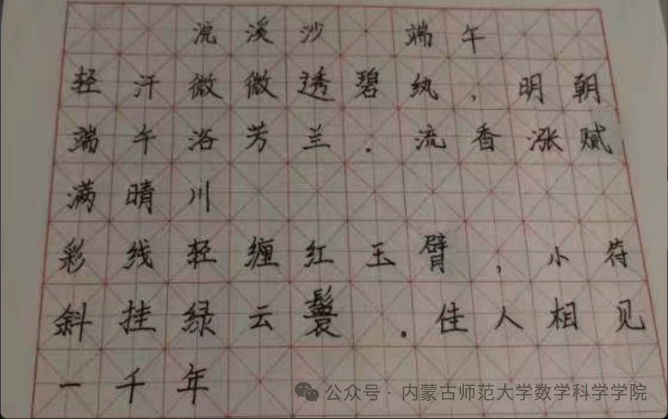 浣溪沙·端午
轻汗微微透碧纨,明朝
端午浴芳兰.流香涨腻
满晴川
彩线轻缠红玉臂,小符
斜挂绿云鬟.佳人相见
一千年
公众号·内蒙古师范大学数学科学学院